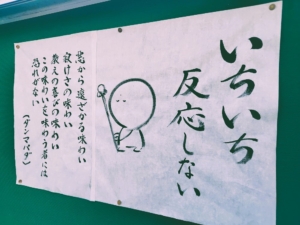 いちいち
反応しない
悪から遠ざかる味わい
寂けさの味わい
教えの喜びの味わい
この味わいを味わう者には
恐れがない
(ダンマパダ)